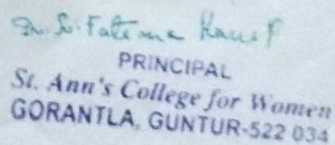 Dr. S. Fatima
PRINCIPAL
St. Ann's College for Women
GORANTLA, GUNTUR-522 034